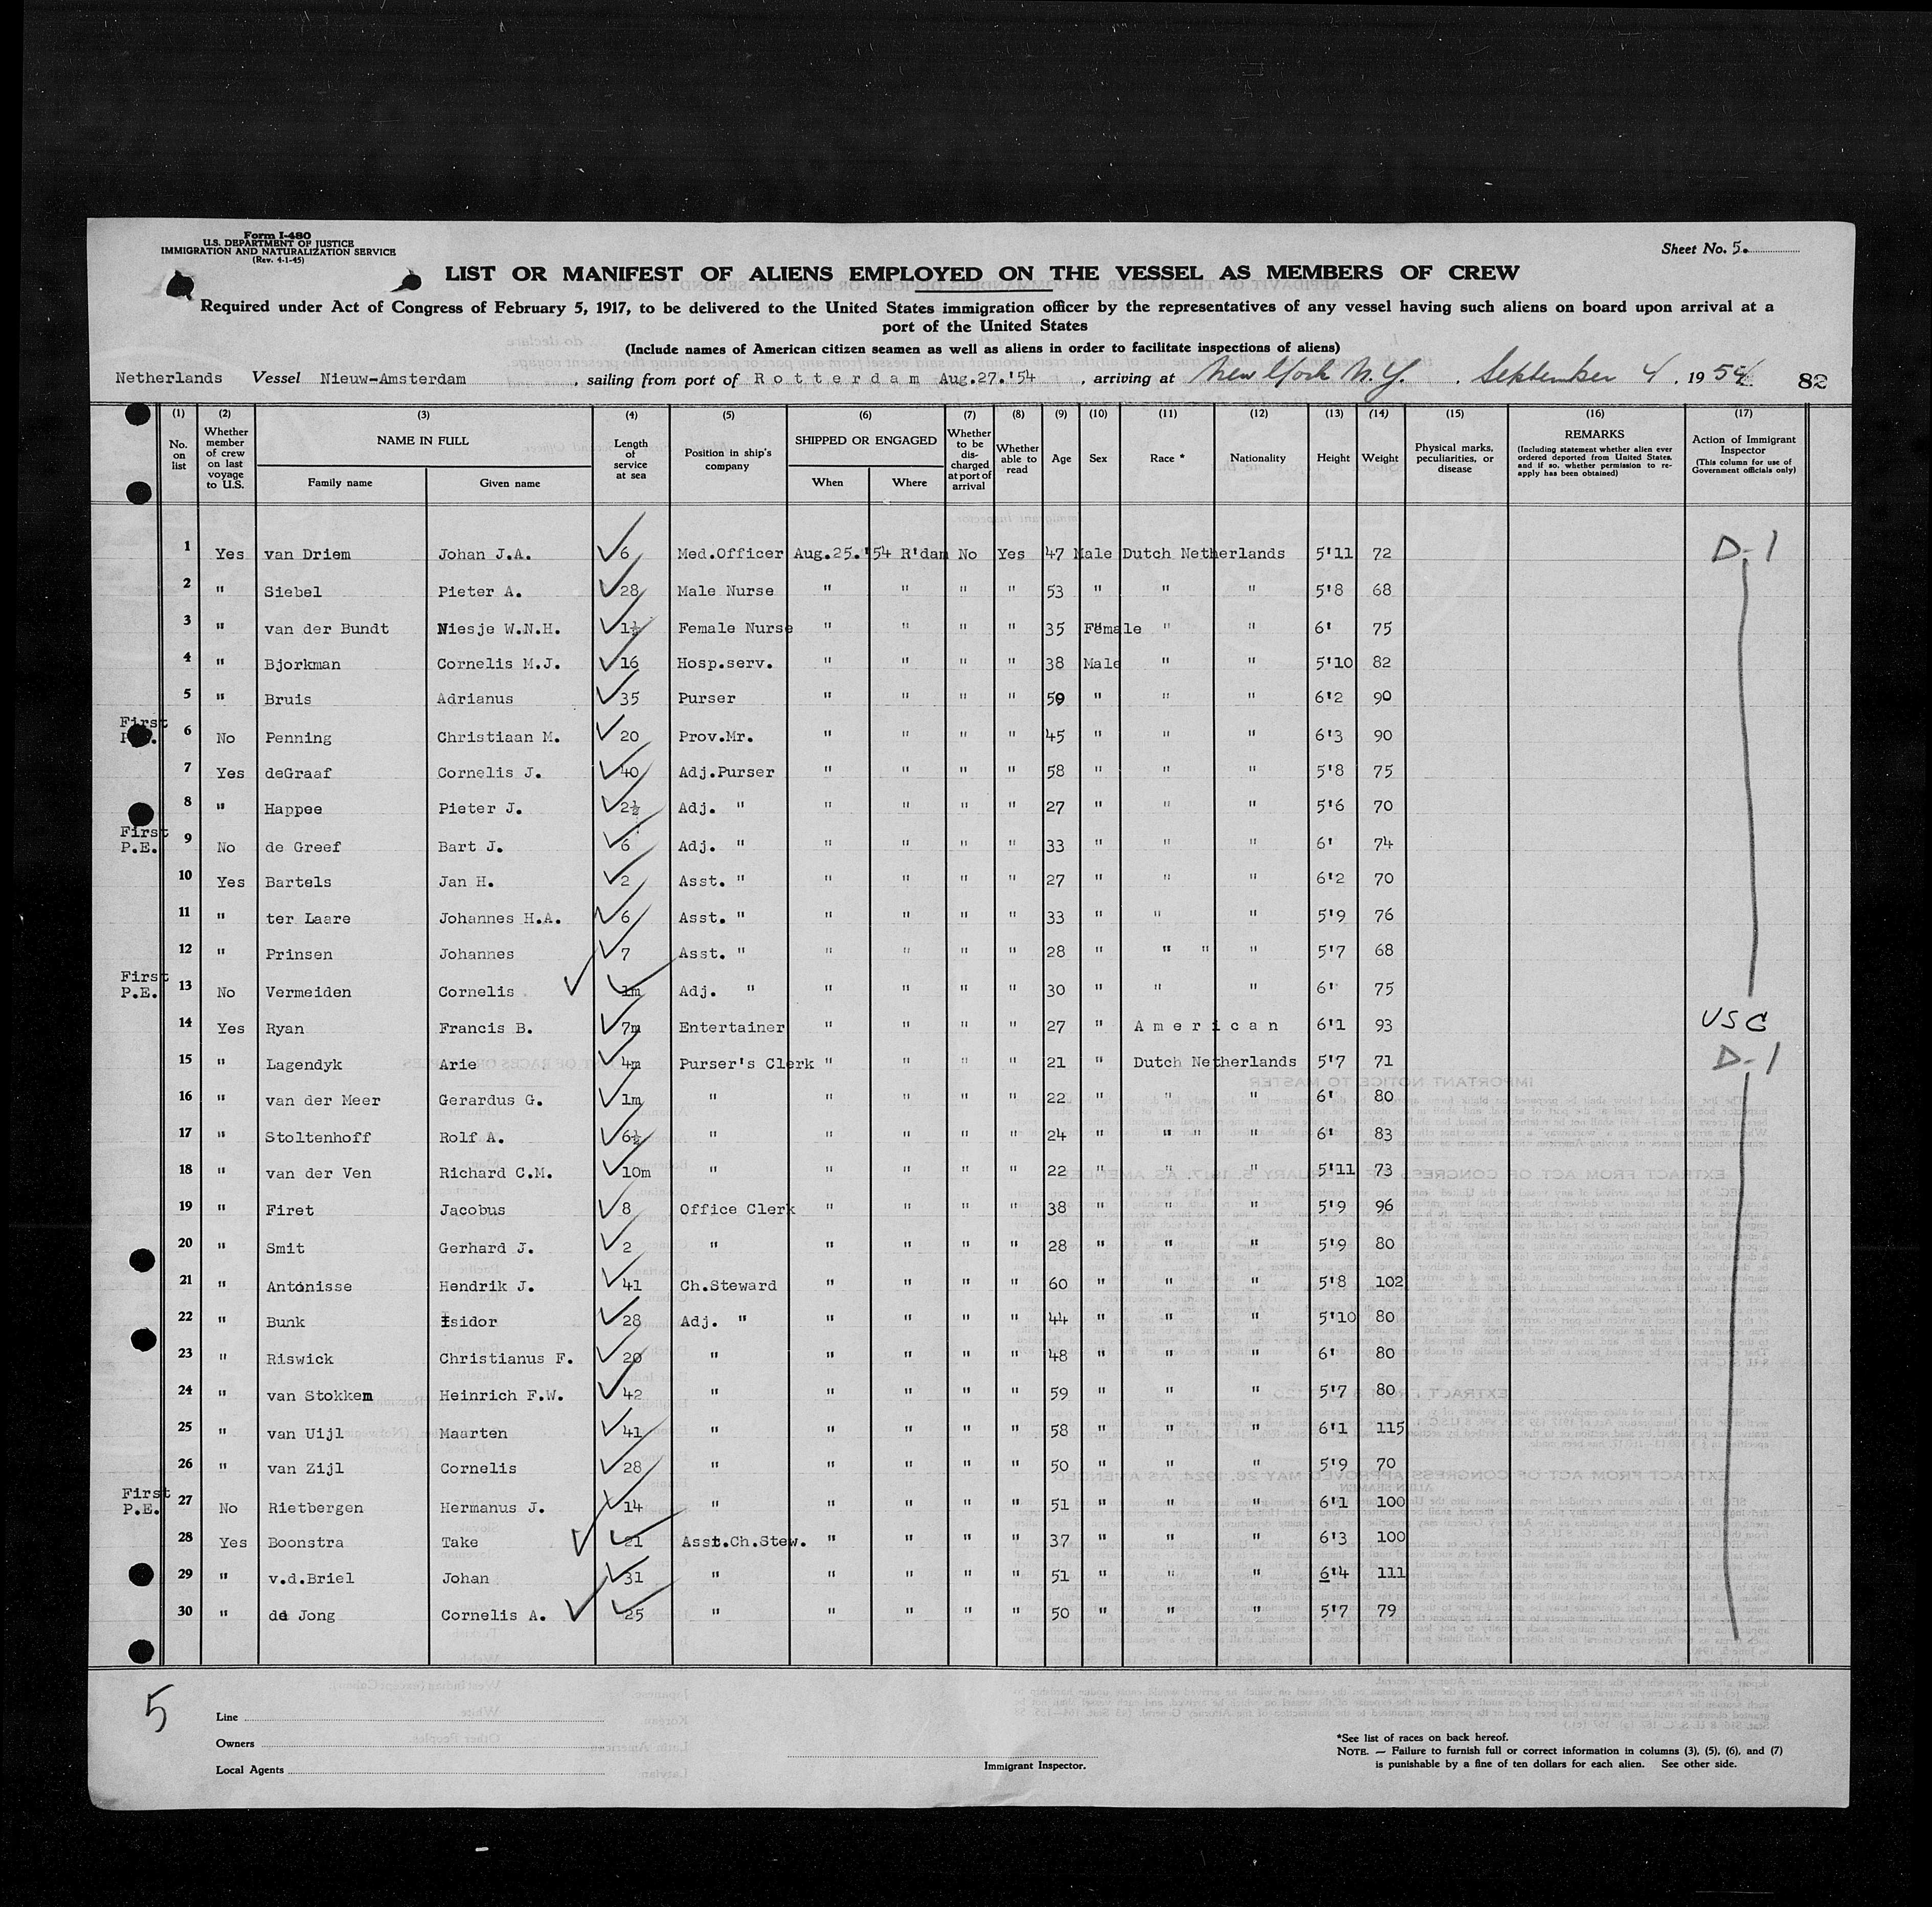 Form I-480
U.S. DEPARTMENT OF JUSTICE
IMMIGRATION AND NATURALIZATION SERVICE
(Rev. 4-1-45)
Sheet No. 5.
LIST OR MANIFEST OF ALIENS EMPLOYED ON THE VESSEL AS MEMBERS OF CREW
Required under Act of Congress of February 5, 1917, to be delivered to the United States immigration officer by the representatives of any vessel having such aliens on board upon arrival at a
port of the United States
(Include names of American citizen seamen as well as aliens in order to facilitate inspections of aliens)
Netherlands Vessel Nieuw-Amsterdam , sailing from port of Rotterdam Aug.27.'54 , arriving at New York N.Y. , September 4 , 1954 82
(1) (2) (3) (4) (5) (6) (7) (8) (9) (10) (11) (12) (13) (14) (15) (16) (17)
No. on list Whether member of crew on last voyage to U.S. NAME IN FULL Family name Given name Length of service at sea Position in ship's company SHIPPED OR ENGAGED When Where Whether to be discharged at port of arrival Whether able to read Age Sex Race * Nationality Height Weight Physical marks, peculiarities, or disease REMARKS (Including statement whether alien ever ordered deported from United States, and if so, whether permission to re-apply has been obtained) Action of Immigrant Inspector (This column for use of Government officials only)
1 Yes van Driem Johan J.A. 6 Med.Officer Aug.25.'54 R'dam No Yes 47 Male Dutch Netherlands 5'11 72 D-1
2 " Siebel Pieter A. 28 Male Nurse " " " " 53 " " " 5'8 68
3 " van der Bundt Niesje W.N.H. 1½ Female Nurse " " " " 35 Female " " 6' 75
4 " Bjorkman Cornelis M.J. 16 Hosp.serv. " " " " 38 Male " " 5'10 82
5 " Bruis Adrianus 35 Purser " " " " 59 " " " 6'2 90
First 6 No Penning Christiaan M. 20 Prov.Mr. " " " " 45 " " " 6'3 90
7 Yes deGraaf Cornelis J. 40 Adj.Purser " " " " 58 " " " 5'8 75
8 " Happee Pieter J. 2½ Adj. " " " " " 27 " " " 5'6 70
First P.E. 9 No de Greef Bart J. 6 Adj. " " " " " 33 " " " 6' 74
10 Yes Bartels Jan H. 2 Asst. " " " " " 27 " " " 6'2 70
11 " ter Laare Johannes H.A. 6 Asst. " " " " " 33 " " " 5'9 76
12 " Prinsen Johannes 7 Asst. " " " " " 28 " " " " 5'7 68
First P.E. 13 No Vermeiden Cornelis 1m Adj. " " " " " 30 " " " 6' 75
14 Yes Ryan Francis B. 7m Entertainer " " " " 27 " American 6'1 93 USC
15 " Lagendyk Arie 4m Purser's Clerk " " " " 21 " Dutch Netherlands 5'7 71 D-1
16 " van der Meer Gerardus G. 1m " " " " " 22 " " " 6' 80
17 " Stoltenhoff Rolf A. 6½ " " " " " 24 " " " " 6' 83
18 " van der Ven Richard C.M. 10m " " " " " 22 " " " 5'11 73
19 " Firet Jacobus 8 Office Clerk " " " " 38 " " " 5'9 96
20 " Smit Gerhard J. 2 " " " " " 28 " " " 5'9 80
21 " Antonisse Hendrik J. 41 Ch.Steward " " " " 60 " " " 5'8 102
22 " Bunk Isidor 28 Adj. " " " " " 44 " " " 5'10 80
23 " Riswick Christianus F. 20 " " " " " 48 " " " 6' 80
24 " van Stokkem Heinrich F.W. 42 " " " " " 59 " " " 5'7 80
25 " van Uijl Maarten 41 " " " " " 58 " " " 6'1 115
26 " van Zijl Cornelis 28 " " " " " 50 " " " 5'9 70
First P.E. 27 No Rietbergen Hermanus J. 14 " " " " " 51 " " " 6'1 100
28 Yes Boonstra Take 21 Asst.Ch.Stew. " " " " 37 " " " 6'3 100
29 " v.d.Briel Johan 31 " " " " " 51 " " " 6'4 111
30 " de Jong Cornelis A. 25 " " " " " 50 " " " 5'7 79
5
Line
Owners
Local Agents
Immigrant Inspector.
*See list of races on back hereof.
NOTE. — Failure to furnish full or correct information in columns (3), (5), (6), and (7)
is punishable by a fine of ten dollars for each alien. See other side.